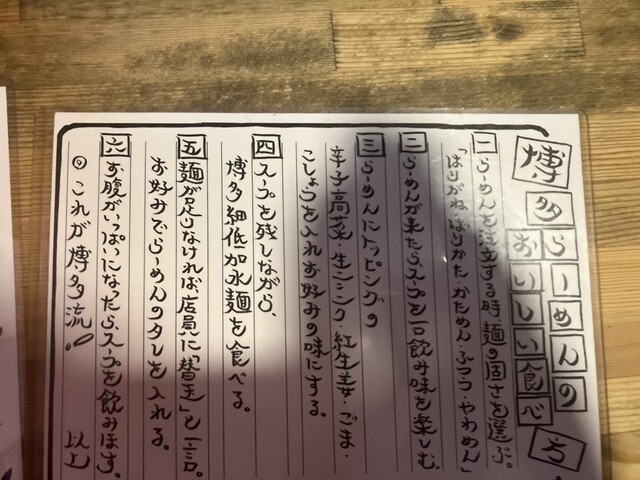 博多らーめんの
おいしい食べ方
一 らーめんを注文する時、麺の固さを選ぶ。
「はりがね・ばりかた・かためん・ふつう・やわめん」
二 らーめんが来たらスープを一口飲み味を楽しむ。
三 らーめんにトッピングの
辛子高菜・生ニンニク・紅生姜・ごま・
こしょうを入れお好みの味にする。
四 スープを残しながら、
博多細低加水麺を食べる。
五 麺が足りなければ、店員に「替玉」と一言。
お好みでらーめんのタレを入れる。
六 お腹がいっぱいになったら、スープを飲みほす。
◎これが博多流!! 以上